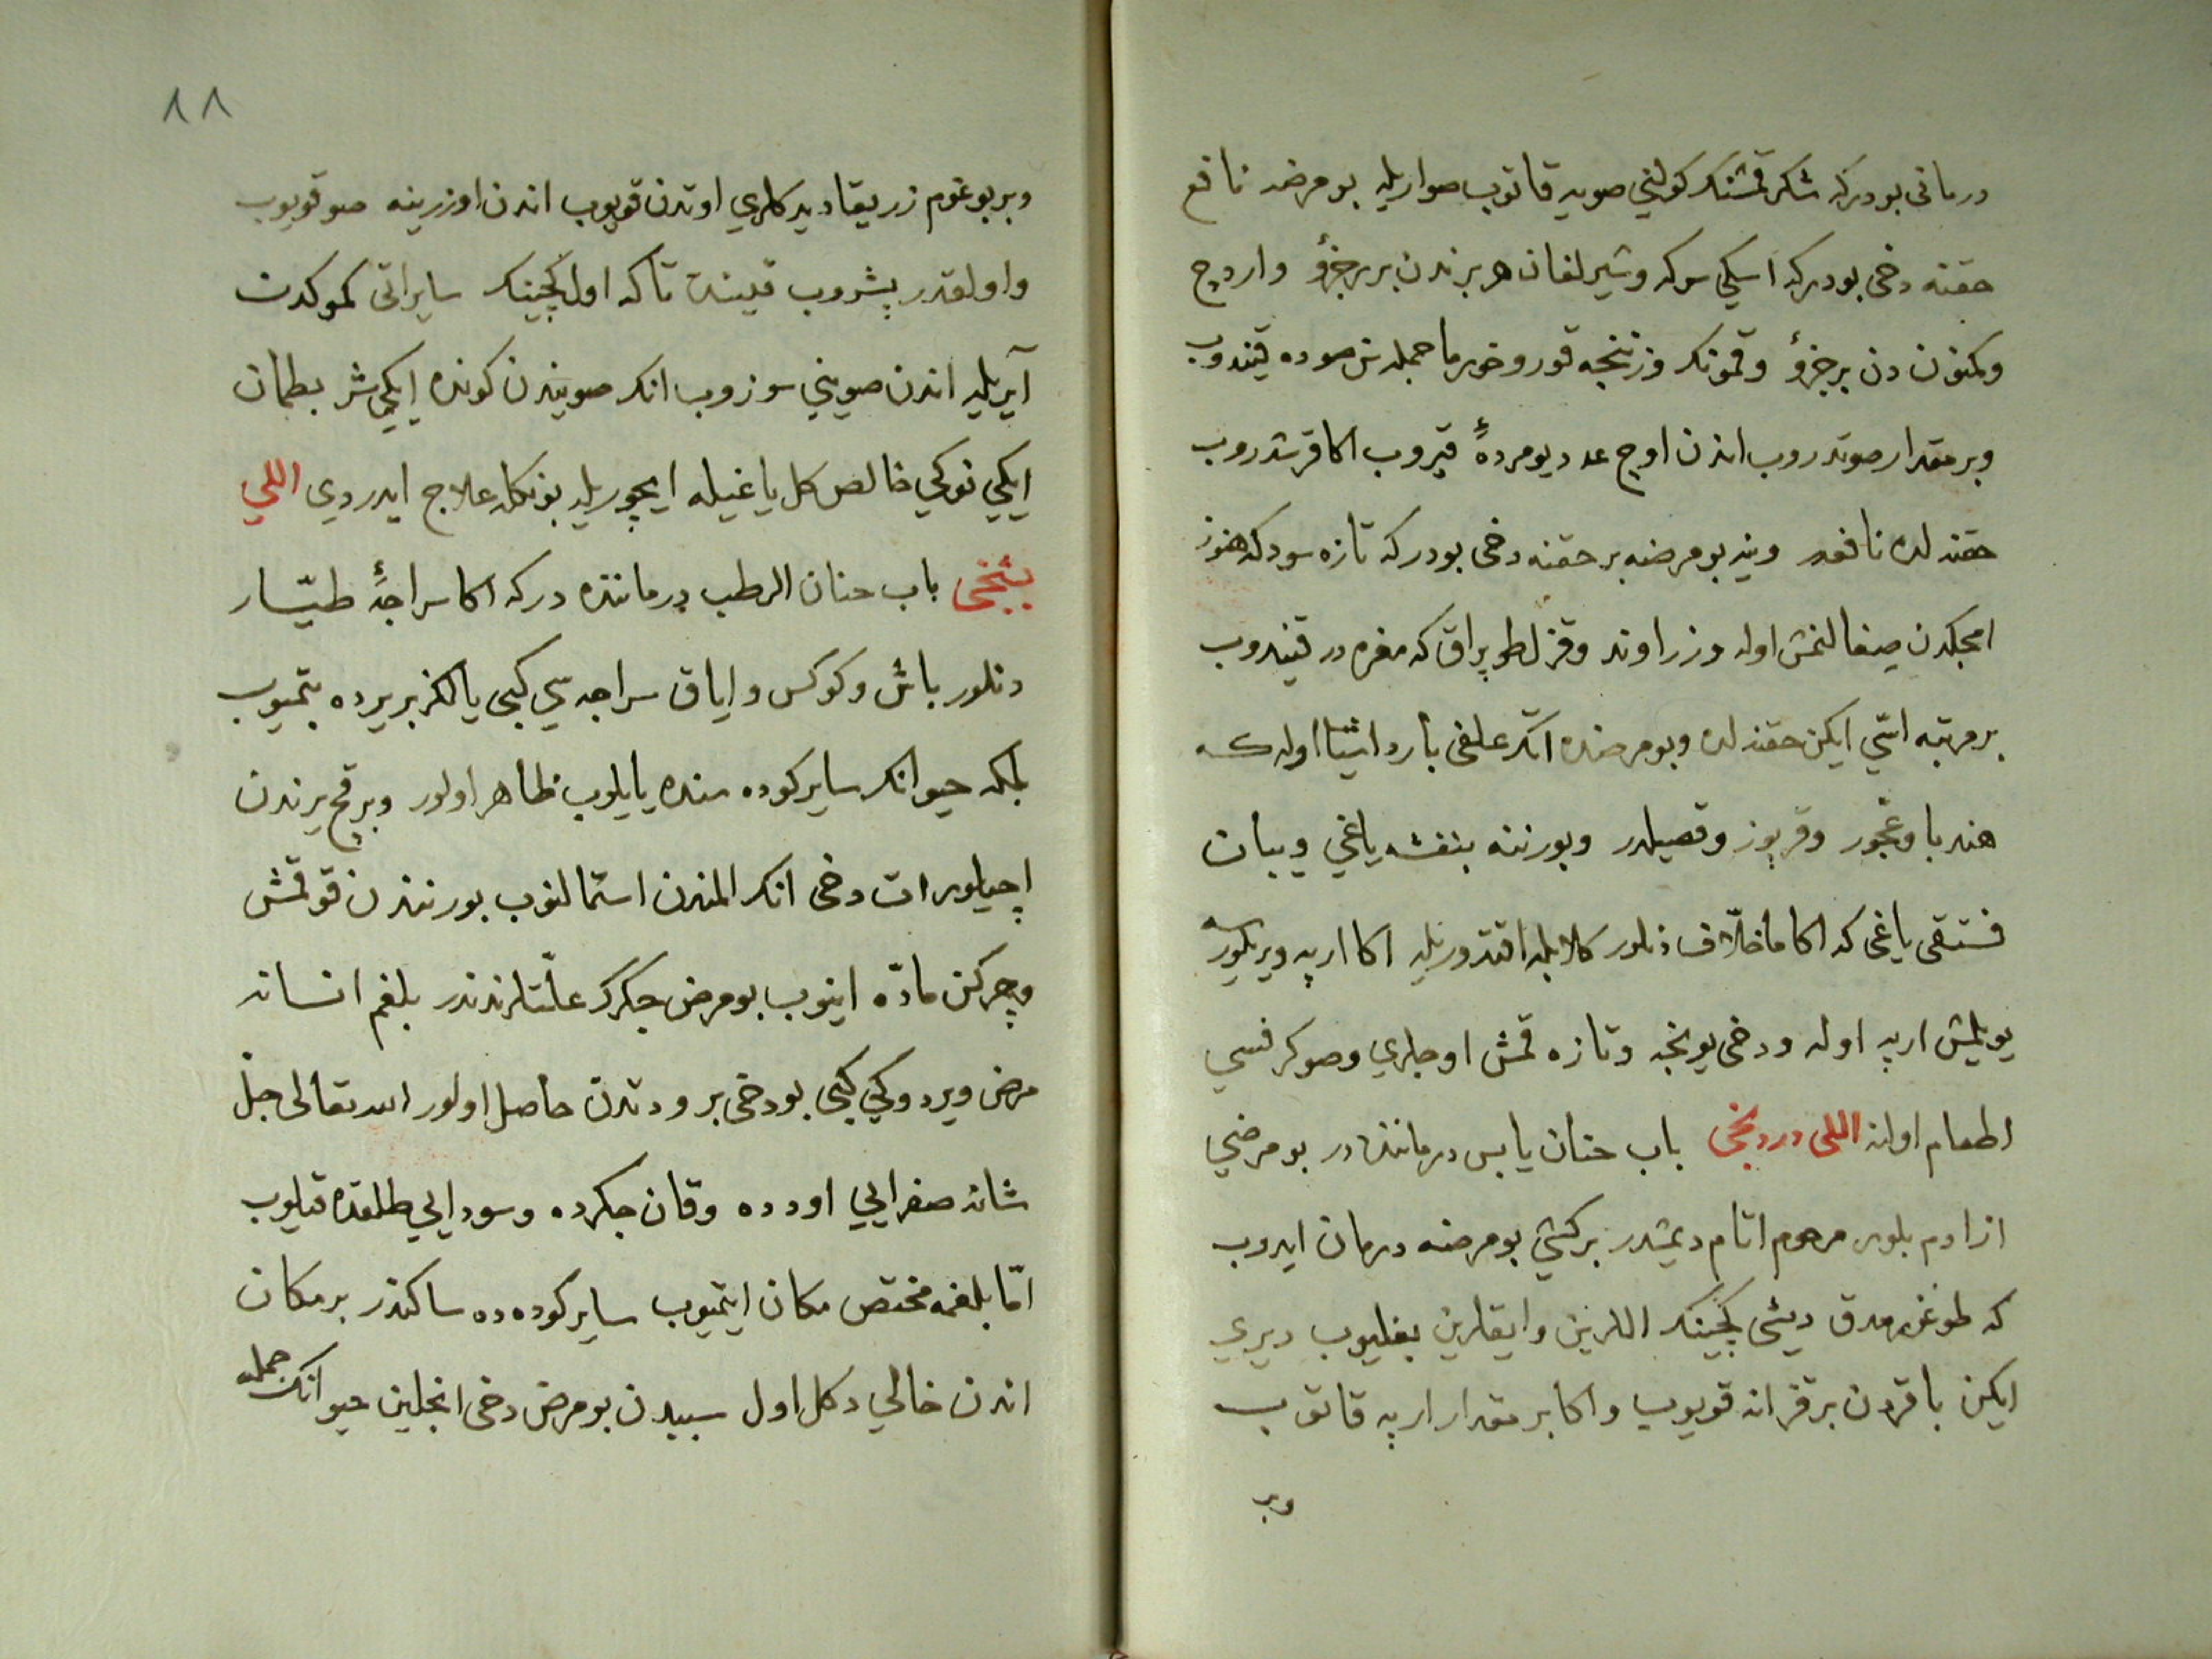 درمانی بودركه شكر قمشنك كولني صويه قاتوب صواريله بومرضه نافع
حقنه دخی بودركه اسكي سركه وشيرلغان هر برندن برر جزؤ واردج
وكمنون دن بر جزؤ وقمونك وزننجه قورو خورما جمله سن صوده قيندوب
وبر مقدار صوتدروب اندن اوچ عدد يومردهٔ قيروب اكا قرشدروب
حقنه لده نافعدر وينه بومرضه بر حقنه دخی بودركه تازه سودكه هنوز
امجكدن صغالنمش اوله وزراوند وقزل طوپراق كه مغره در قيندوب
بر مرتبه اسّي ايكن حقنه لده وبومرضده آتك علفی بارد اشيا اوله كه
هندبا وعجّور وقرپوز وقصيلدر وبورننه بنفشه ياغي وبيان
فستقی ياغی كه اكا ماخلّاف دنلور كلابله اقتدوريله اكا ارپه ويريلورسه
يويلمش ارپه اوله ودخی يونجه وتازه قمش اوجلري وصو كرفسي
اطعام اولنه اللی دردنجی باب خنان يابس درماننده در بومرضي
ازادم بلور مرحوم اتام ديمشدر بركشي بومرضه درمان ايدوب
كه طوغرمدق ديشی كچينك اللرين واياقلرين بغليوب ديري
ايكن باقردن بر قزانه قويوب واكا بر مقدار ارپه قاتوب
وبر
٨٨
وبر بوغوم زريقا ديدكلري اوتدن قويوب اندن اوزرينه صو قويوب
واولقدر پشروب قينده تاكه اول كچينك ساير اتی كموكدن
آيريليه اندن صويني سوزوب انك صويندن كونده ايكيشر بطمان
ايكي نوكي خالص كل ياغيله ايچوريله بونكله علاج ايدردي اللي
بشنجی باب خنان الرطب درماننده دركه اكا سراجهٔ طيّار
دنلور باش وكوكس واياق سراجه سي كبی يالكز بر يرده بتميوب
بلكه حيوانك ساير كوده سنده يايلوب ظاهر اولور وبرقچ يرندن
اچيلور ات دخی انك المندن استمالنوب بورنندن قوقمش
وچركن مادّه اينوب بومرض جكرك علّتلرندندر بلغم انسانه
مرض ويردوكي كبی بودخی برودتدن حاصل اولور الله تعالی جل
شانه صفرايي اودده وقان جكرده وسودايي طلقده قيلوب
امّا بلغمه مختص مكان ايتميوب ساير كودهده ساكندر بر مكان
اندن خالي دكل اول سببدن بومرض دخی انجلين حيوانك جمله